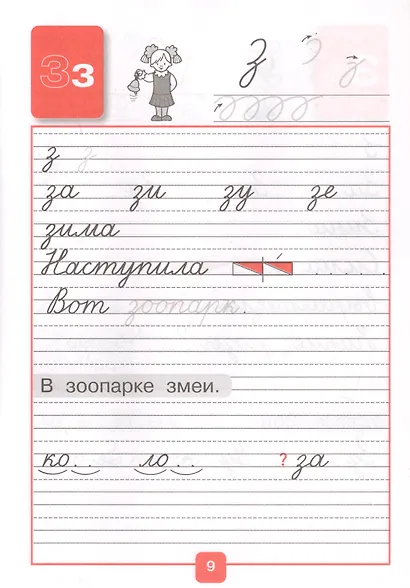 Зз
з
з з
за зи зу зе
зима
Наступила .
Вот зоопарк.
В зоопарке змеи.
ко.. ло.. ? за
9